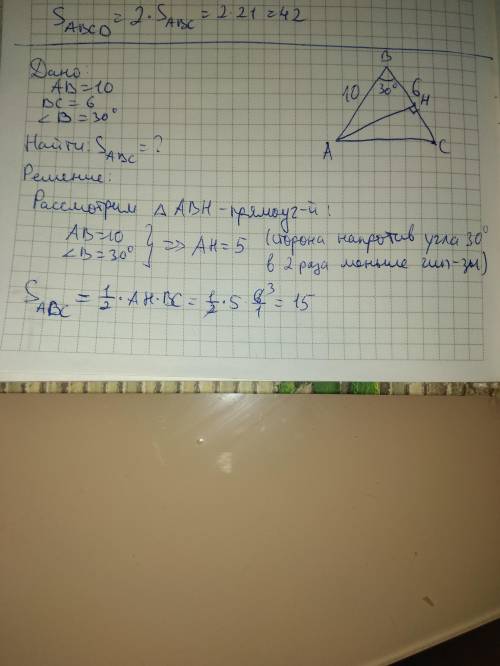 S_ABCD = 2·S_ABC = 2·21 = 42
Дано:
AB=10
BC=6
∠B=30°
Найти: S_ABC = ?
Решение:
B
10
30°
6
H
A
C
Рассмотрим △ ABH - прямоуг-й:
AB=10
∠B=30° } => AH=5 (сторона напротив угла 30°
в 2 раза меньше гип-зы)
S_ABC = 1/2 · AH · BC = 1/2 · 5 6/1 ³ = 15